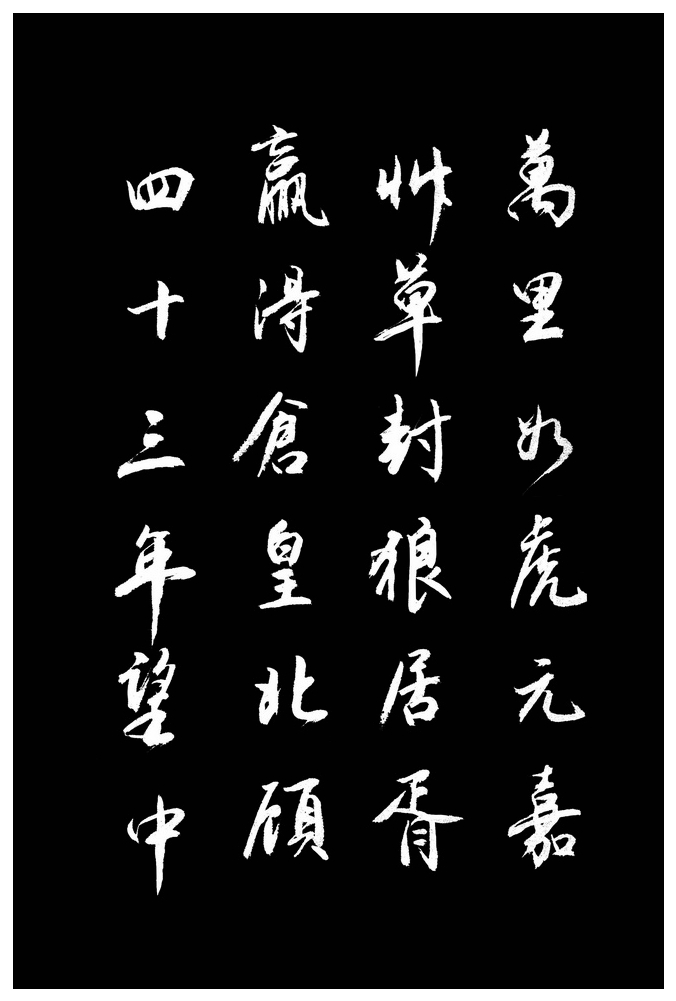 萬里如虎元嘉
艸草封狼居胥
贏得倉皇北顧
四十三年望中